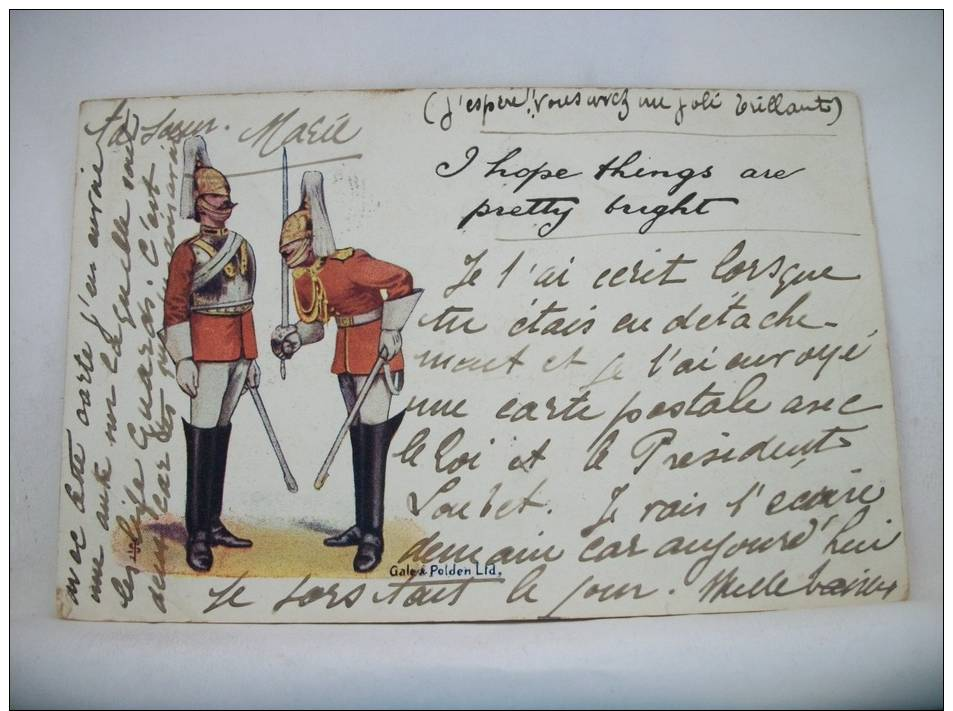 (J'espère! Vous avez un joli brillants)
I hope things are
pretty bright
Je t'ai ecrit lorsque
tu étais en détache-
ment et je t'ai envoyé
une carte postale avec
le Roi et le Président
Loubet. Je vais t'ecrire
demain car aujourd'hui
je sors tout le jour. Mille baisers
Gale & Polden Ltd.
avec cette carte j'en envoie
une autre sur laquelle sont
les Life Guards. C'est
Ta Soeur. Marie